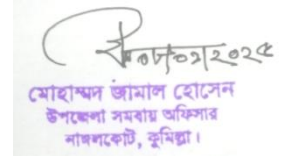 ০৭/০১/২০২৫
মোহাম্মদ জামাল হোসেন
উপজেলা সমবায় অফিসার
নাঙ্গলকোট, কুমিল্লা।